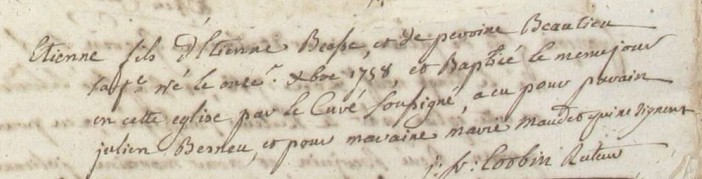 Etienne fils d'Etienne Besse, et de peroine Beaulieu
né le onze Xbre 1758, et Baptisé le meme jour
en cette eglise par le Curé soussigné, a eu pour parain
julien Berneu, et pour maraine marie maudet qui ne signent
Corbin Recteur